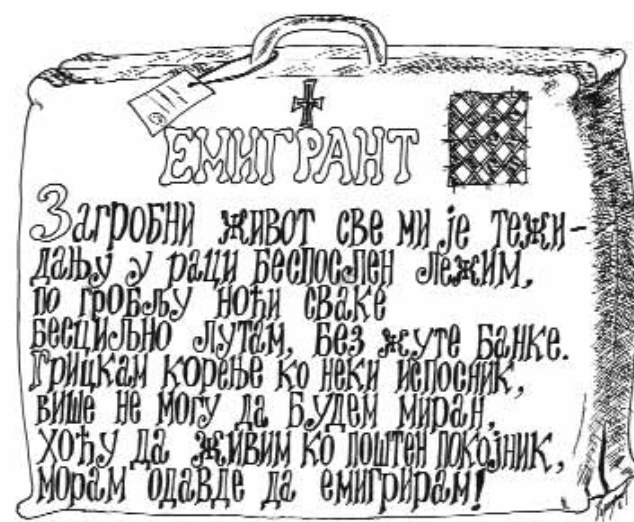 ЕМИГРАНТ
Загробни живот све ми је тежи-
дању у раци беспослен лежим,
по гробљу ноћи сваке
бесциљно лутам, без жуте банке.
Грицкам корење ко неки испосник,
више не могу да будем миран,
хоћу да живим ко поштен покојник,
морам одавде да емигрирам!